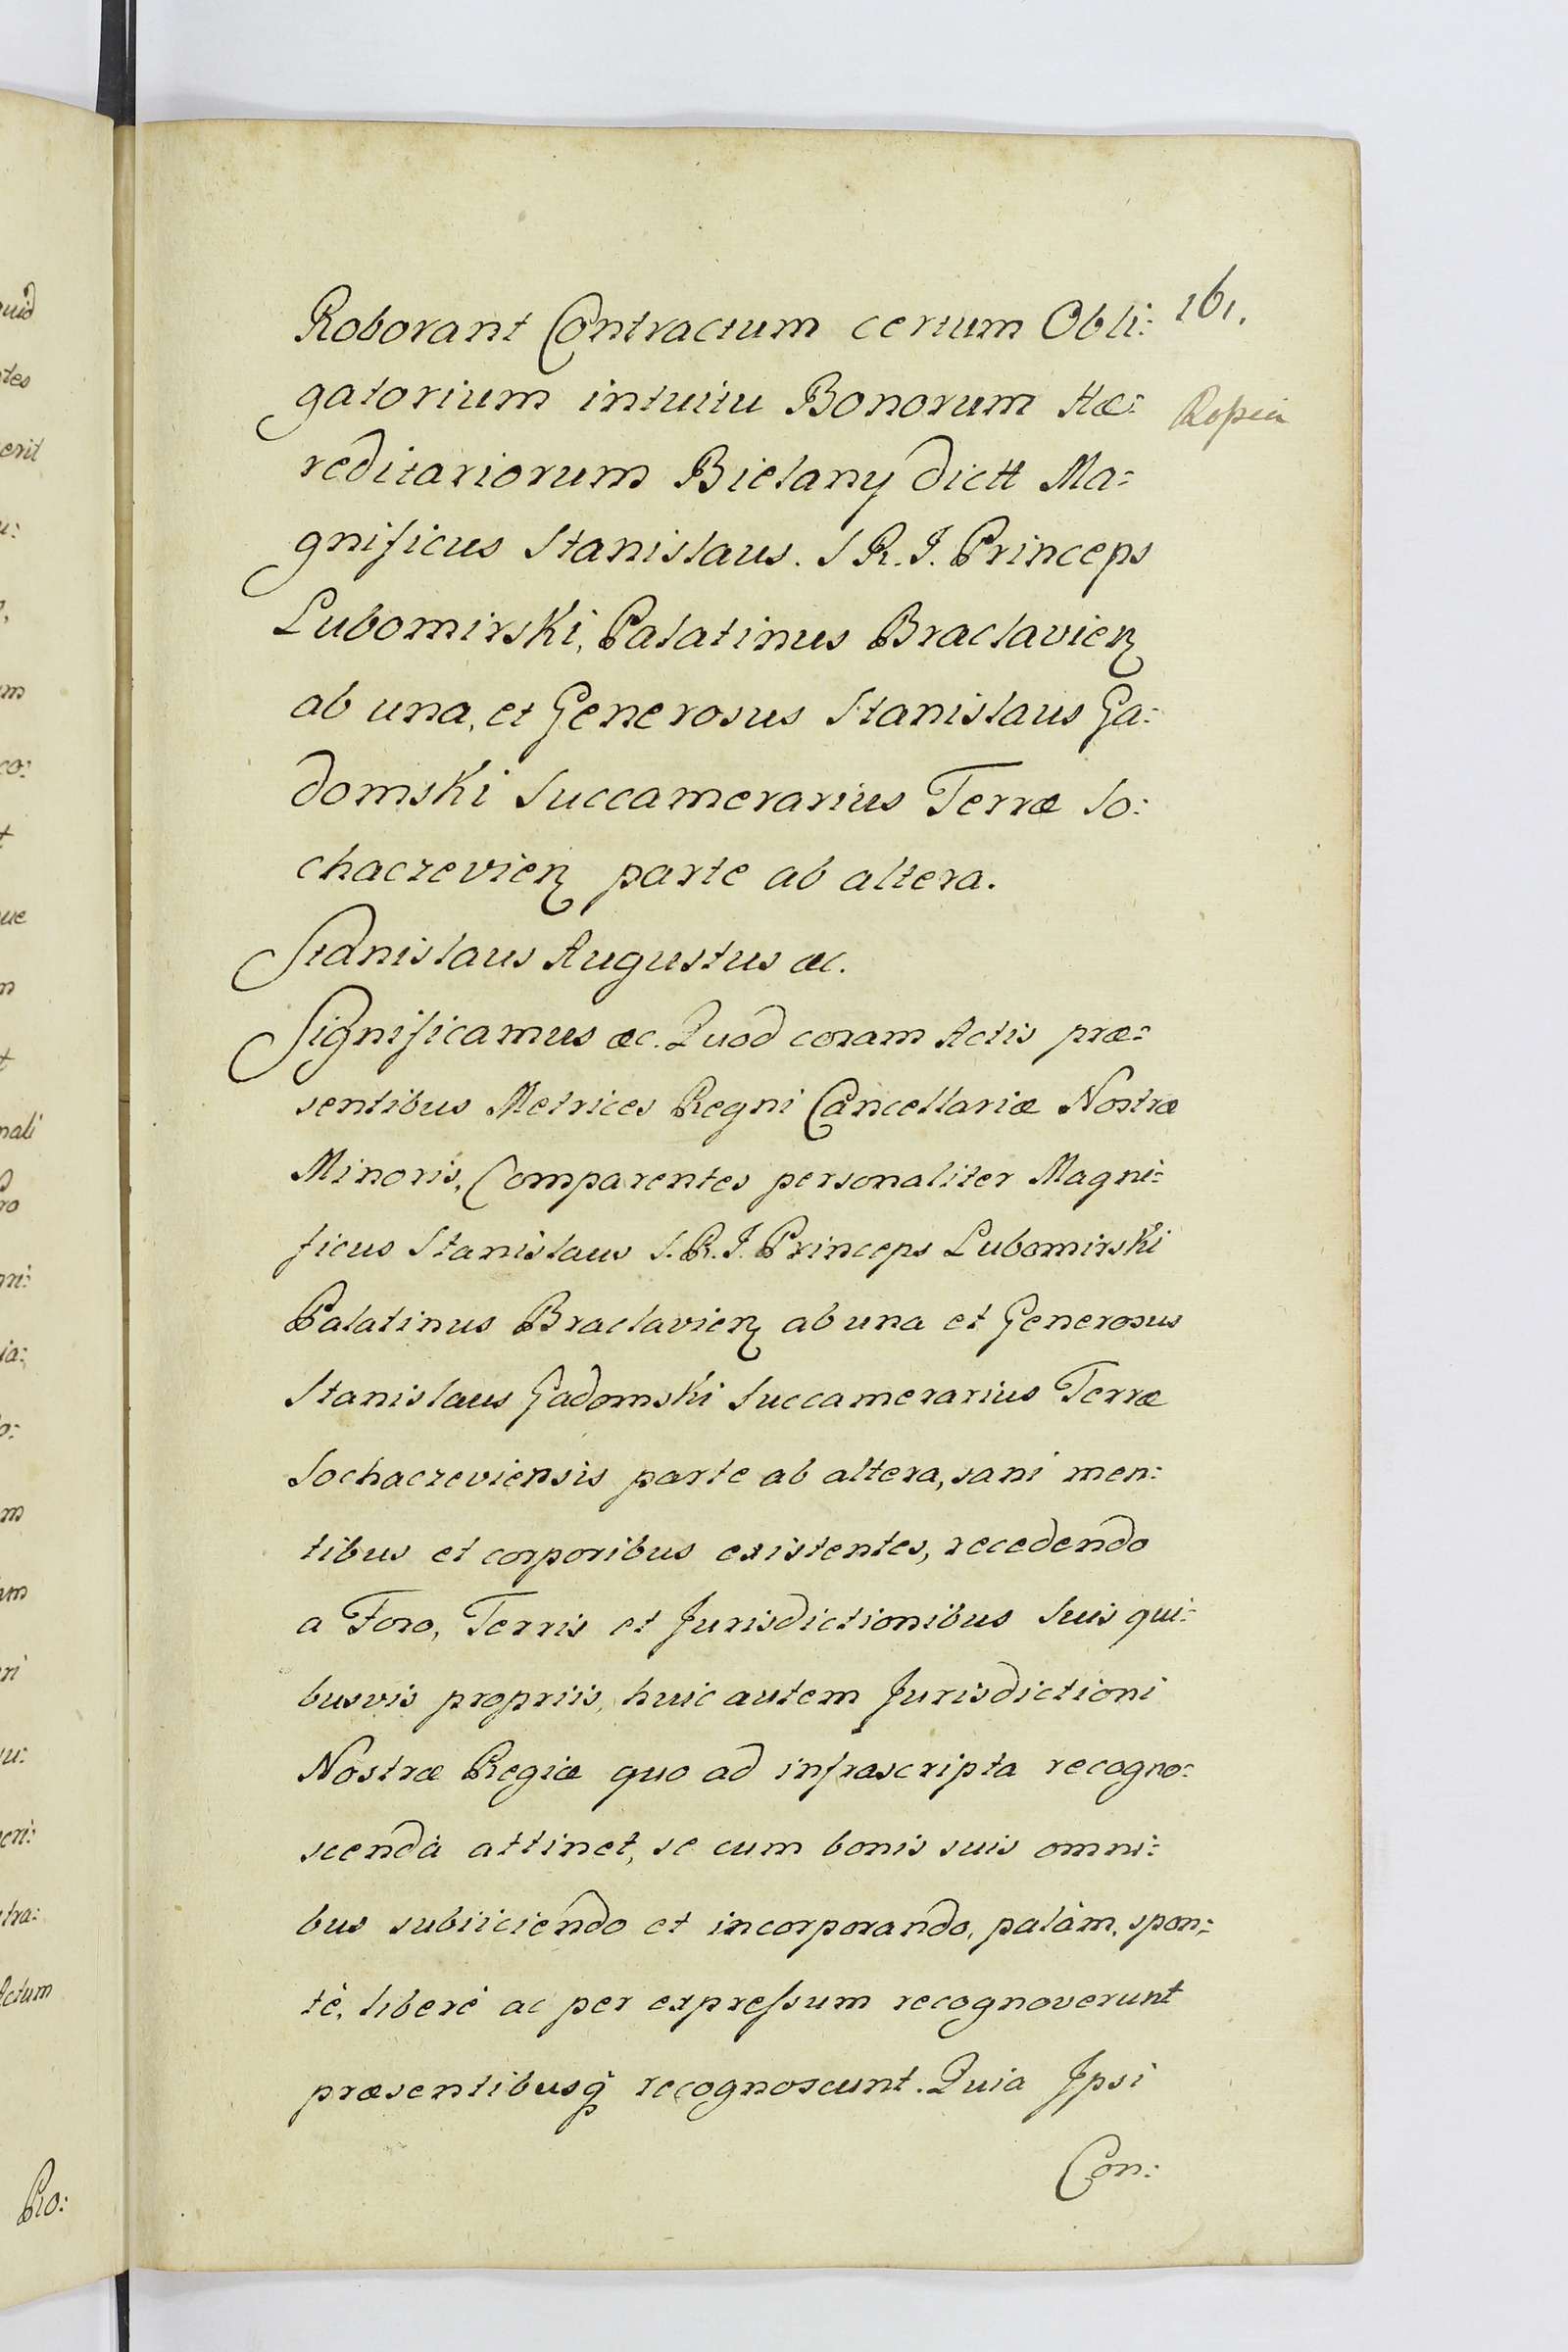 161.
Roborant Contractum certum Obli:
gatorium intuitu Bonorum Hæ:
reditariorum Bielany dictt Ma:
gnificus Stanislaus. S R. J. Princeps
Lubomirski, Palatinus Braclavien
ab una, et Generosus Stanislaus Ga:
domski Succamerarius Terræ So:
chaczevien parte ab altera.
Stanislaus Augustus &c.
Significamus &c. Quod coram Actis præ:
sentibus Metrices Regni Cancellariæ Nostræ
Minoris, Comparentes personaliter Magni:
ficus Stanislaus S. R. J. Princeps Lubomirski
Palatinus Braclavien ab una et Generosus
Stanislaus Gadomski Succamerarius Terræ
Sochaczeviensis parte ab altera, sani men:
tibus et corporibus existentes, recedendo
a Foro, Terris et Jurisdictionibus Suis qui:
busvis propriis, huic autem Jurisdictioni
Nostræ Regiæ quo ad infrascripta recogno:
scenda attinet, se cum bonis suis omni:
bus subiiciendo et incorporando, palàm, spon:
tè, liberè ac per expressum recognoverunt
præsentibusq recognoscunt. Quia Jpsi
Con: